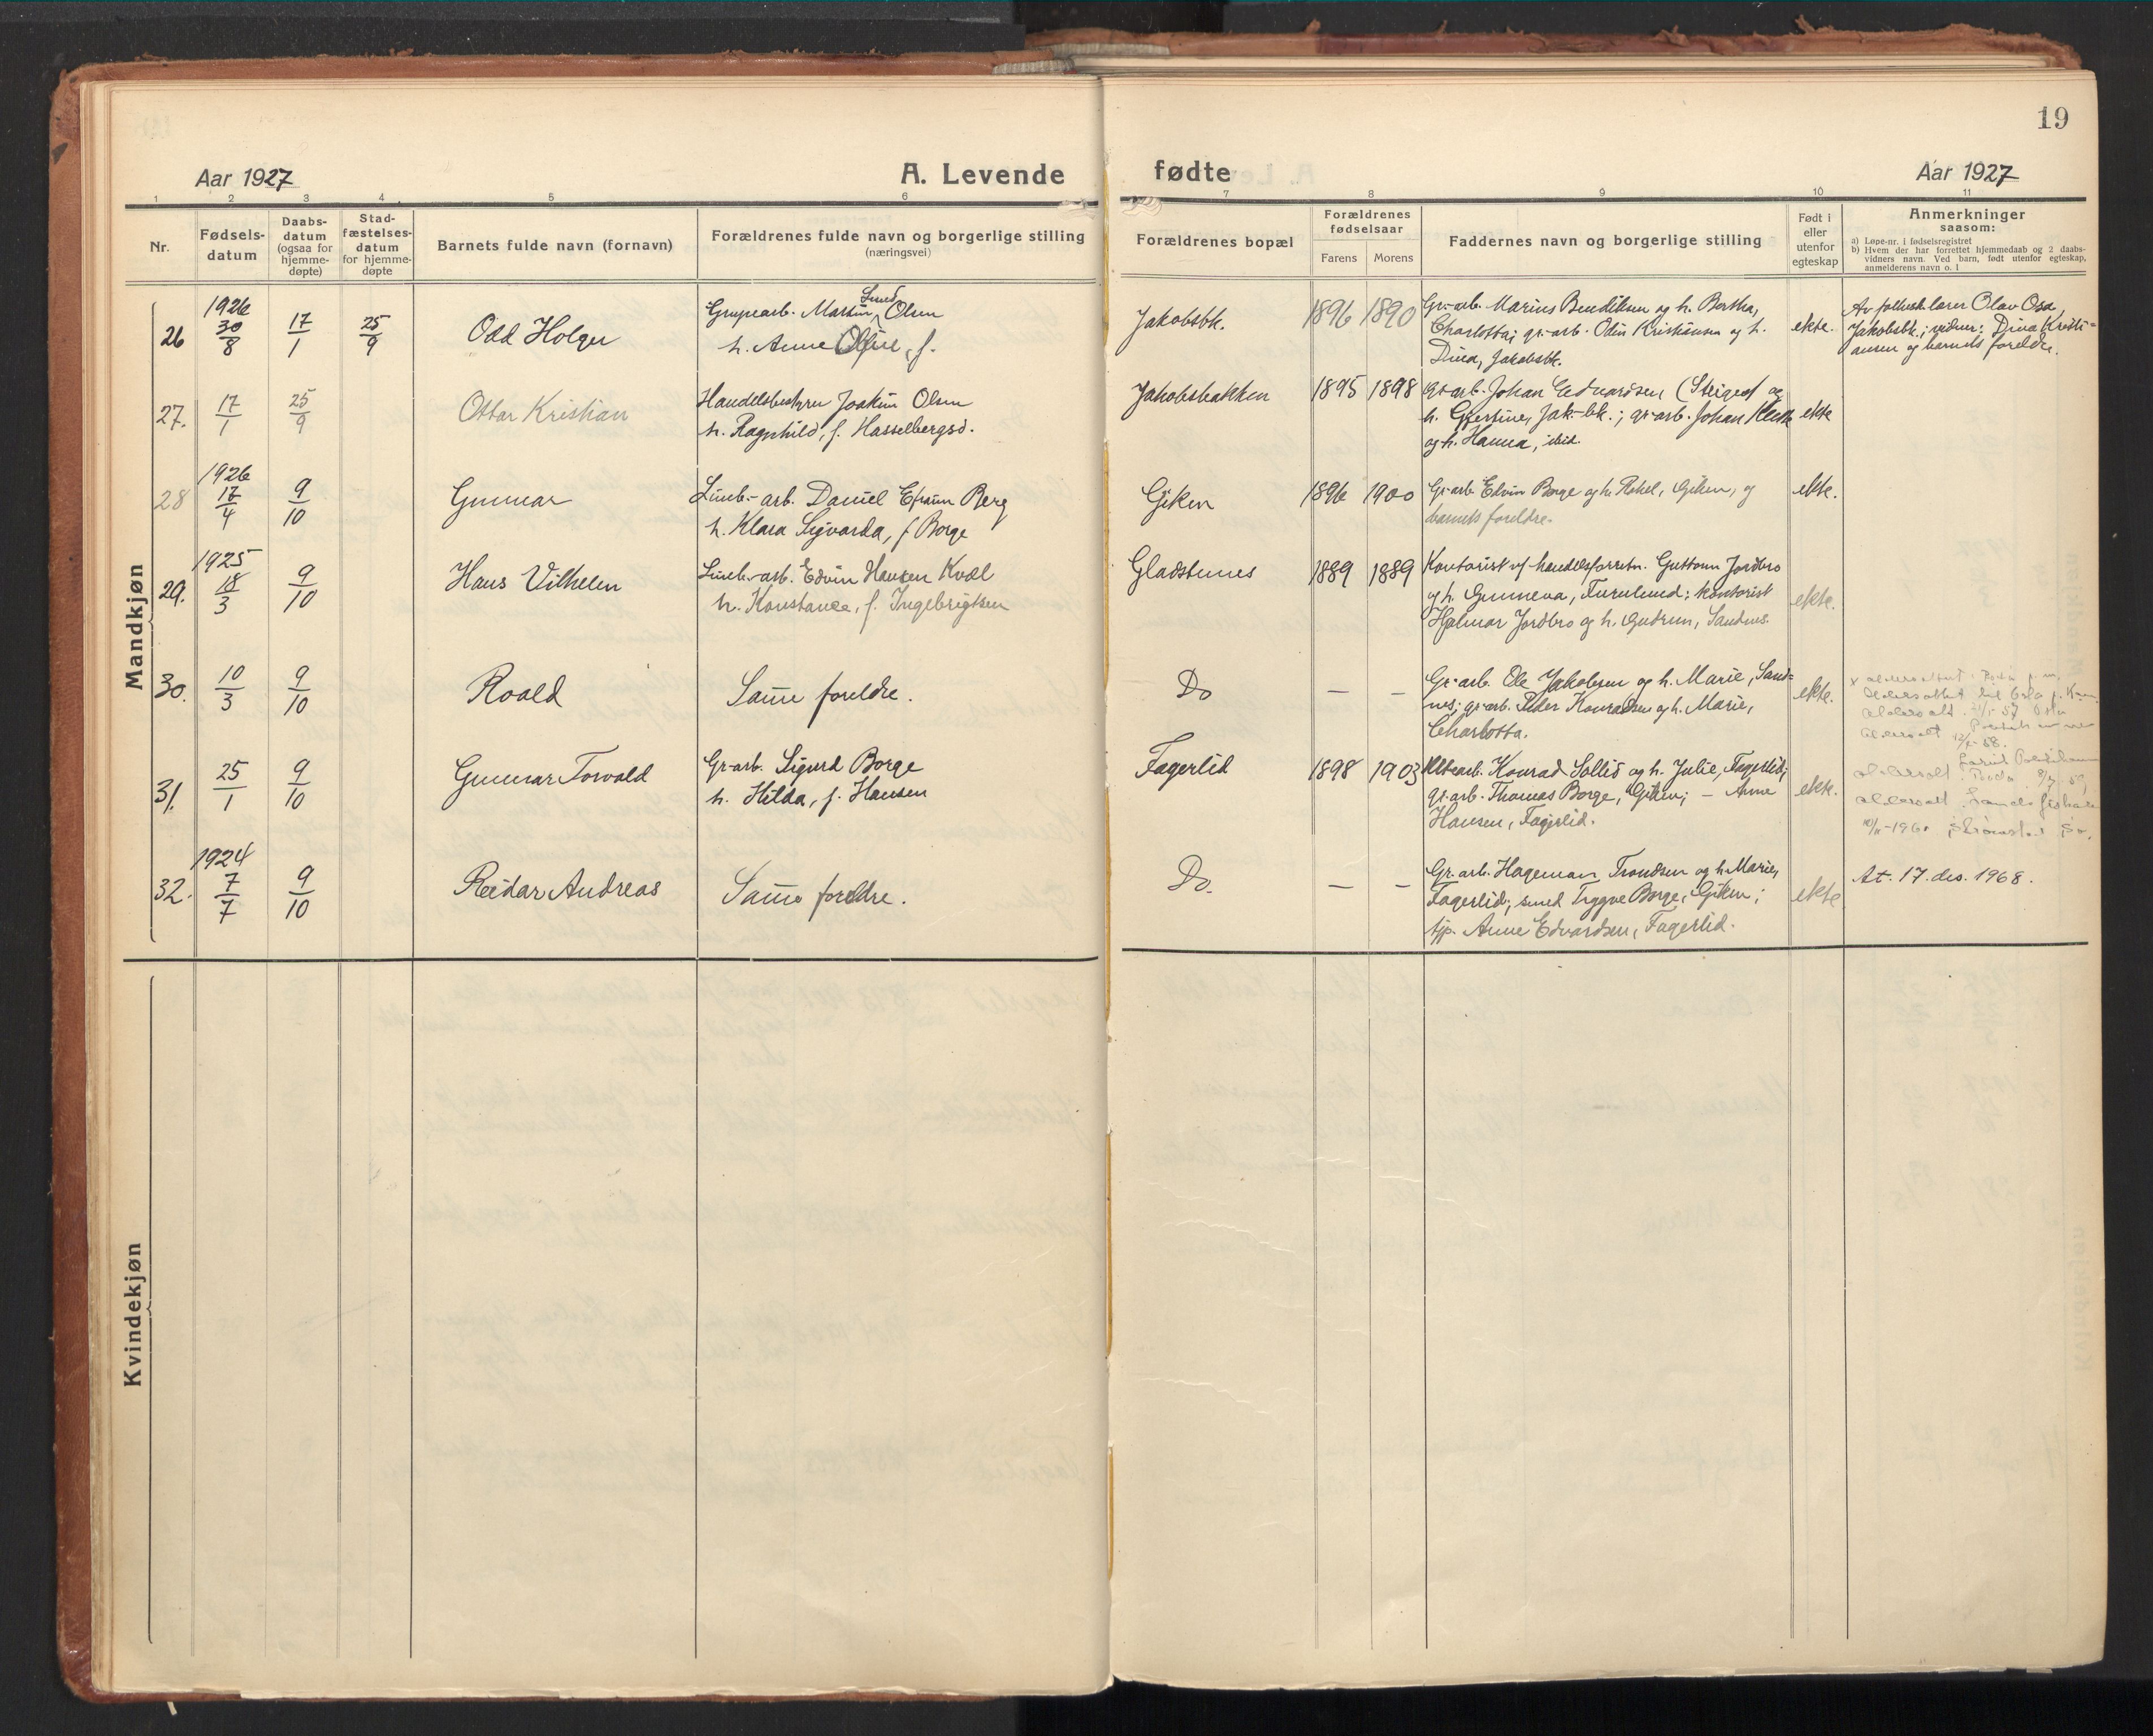 19
Aar 1927
A. Levende fødte
Aar 1927
1 2 3 4 5 6 7 8 9 10 11
Nr.
Fødsels-
datum
Daabs-
datum
(ogsaa for
hjemme-
døpte)
Stad-
fæstelses-
datum
for hjemme-
døpte
Barnets fulde navn (fornavn)
Forældrenes fulde navn og borgerlige stilling
(næringsvei)
Forældrenes bopæl
Forældrenes
fødselsaar
Farens Morens
Faddernes navn og borgerlige stilling
Født i
eller
utenfor
egteskap
Anmerkninger
saasom:
a) Løpe-nr. i fødselsregistret
b) Hvem der har forrettet hjemmedaab og 2 daabs-
vidners navn. Ved barn, født utenfor egteskap,
anmelderens navn o. l
Mandkjøn
26
1926
30/8
17/1
25/9
Odd Holger
Grupearb. Martin Olsen
h. Anne Oline, f.
Jakobsbk.
1896 1890
Gr-arb. Marius Bendiksen og h. Bertha,
Charlotta; gr-arb. Odin Kristiansen og h.
Dina, Jakobsbk.
ekte.
Av folkesk.lærer Olav Osa
Jakobsbk.; vidner: Dina Kristi-
ansen og barnets foreldre.
27.
17/1
25/9
Ottar Kristian
Handelsbestyrer Joakim Olsen
h. Ragnhild, f. Hasselbergsd.
Jakobsbakken
1895 1898
Gr-arb. Johan Edvardsen, (Steigen) og
h. Gjertine, Jak-bk.; gr-arb. Johan
og h. Hanna, ibid.
ekte
28
1926
17/4
9/10
Gunnar
Linb.-arb. Daniel Efraim Berg
h. Klara Sigvarda, f Borge
Giken
1896 1900
Gr-arb. Edvin Borge og h. Rakel, Giken, og
barnets foreldre.
ekte.
29.
1925
18/3
9/10
Hans Vilhelm
Linb.-arb. Edvin Hansen Kvæl
h. Konstance, f. Ingebrigtsen
Gladstunes
1889 1889
Kontorist v/ handelsforretn. Guttorm Jordbro
og h. Gunneva, Furulund; kontorist
Hjalmar Jordbro og h. Gudrun, Sandnes.
ekte.
30.
10/3
9/10
Roald
Samme foreldre.
Do
— —
Gr-arb. Ole Jakobsen og h. Marie, Sand-
nes; gr-arb. Peder Konradsen og h. Marie,
Charlotta.
ekte.
31.
25/1
9/10
Gunnar Torvald
Gr-arb. Sigurd Borge
h. Hilda, f. Hansen
Fagerlid
1898 1903
Konrad Sollid og h. Julie, Fagerlid;
gr-arb. Thomas Borge, Giken; — Anne
Hansen, Fagerlid.
ekte.
32.
1924
7/7
9/10
Reidar Andreas
Samme foreldre.
Do.
— —
Gr. arb. Hageman Trondsen og h. Marie,
Fagerlid; smed Trygve Borge, Giken;
tjp. Anne Edvardsen, Fagerlid.
ekte
At. 17. des. 1968.
Kvindekjøn